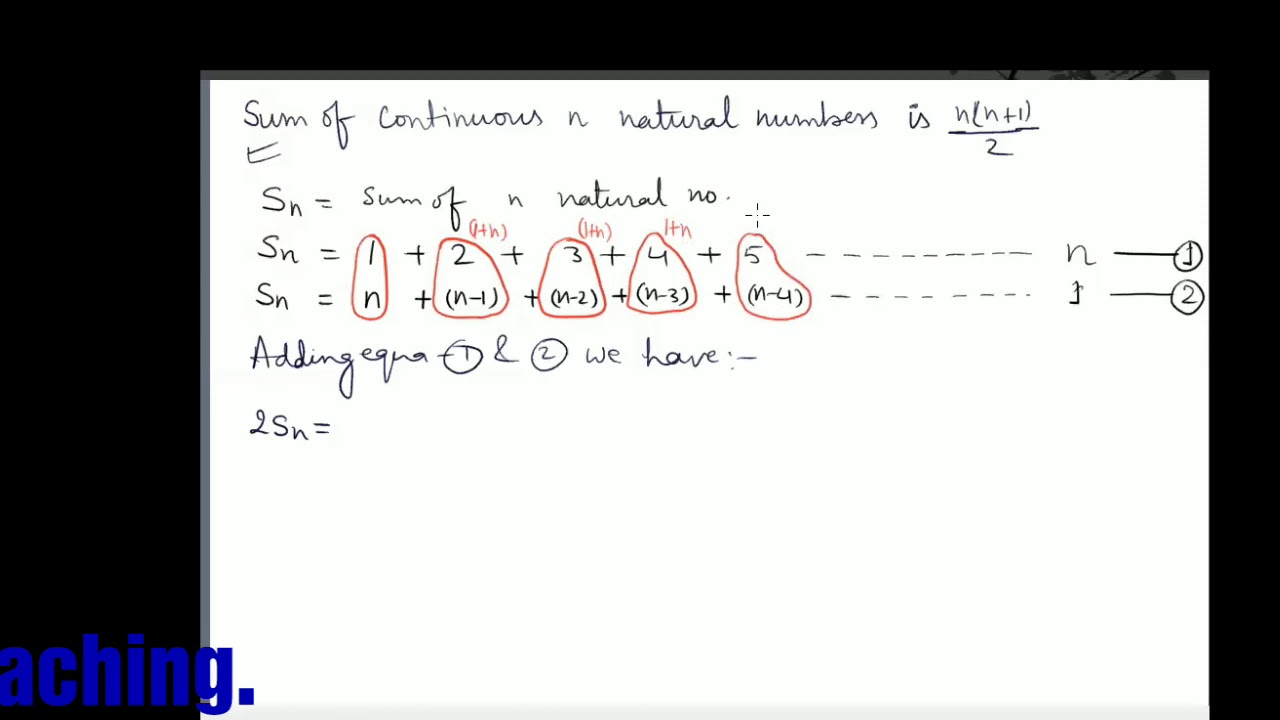 Sum of continuous n natural numbers is n(n+1)/2
Sn = sum of n natural no.
(1+n) (1+n) 1+n
Sn = 1 + 2 + 3 + 4 + 5 - - - - - - - - - n — 1
Sn = n + (n-1) + (n-2) + (n-3) + (n-4) - - - - - - - 1 — 2
Adding equa - 1 & 2 we have :-
2Sn =
aching.